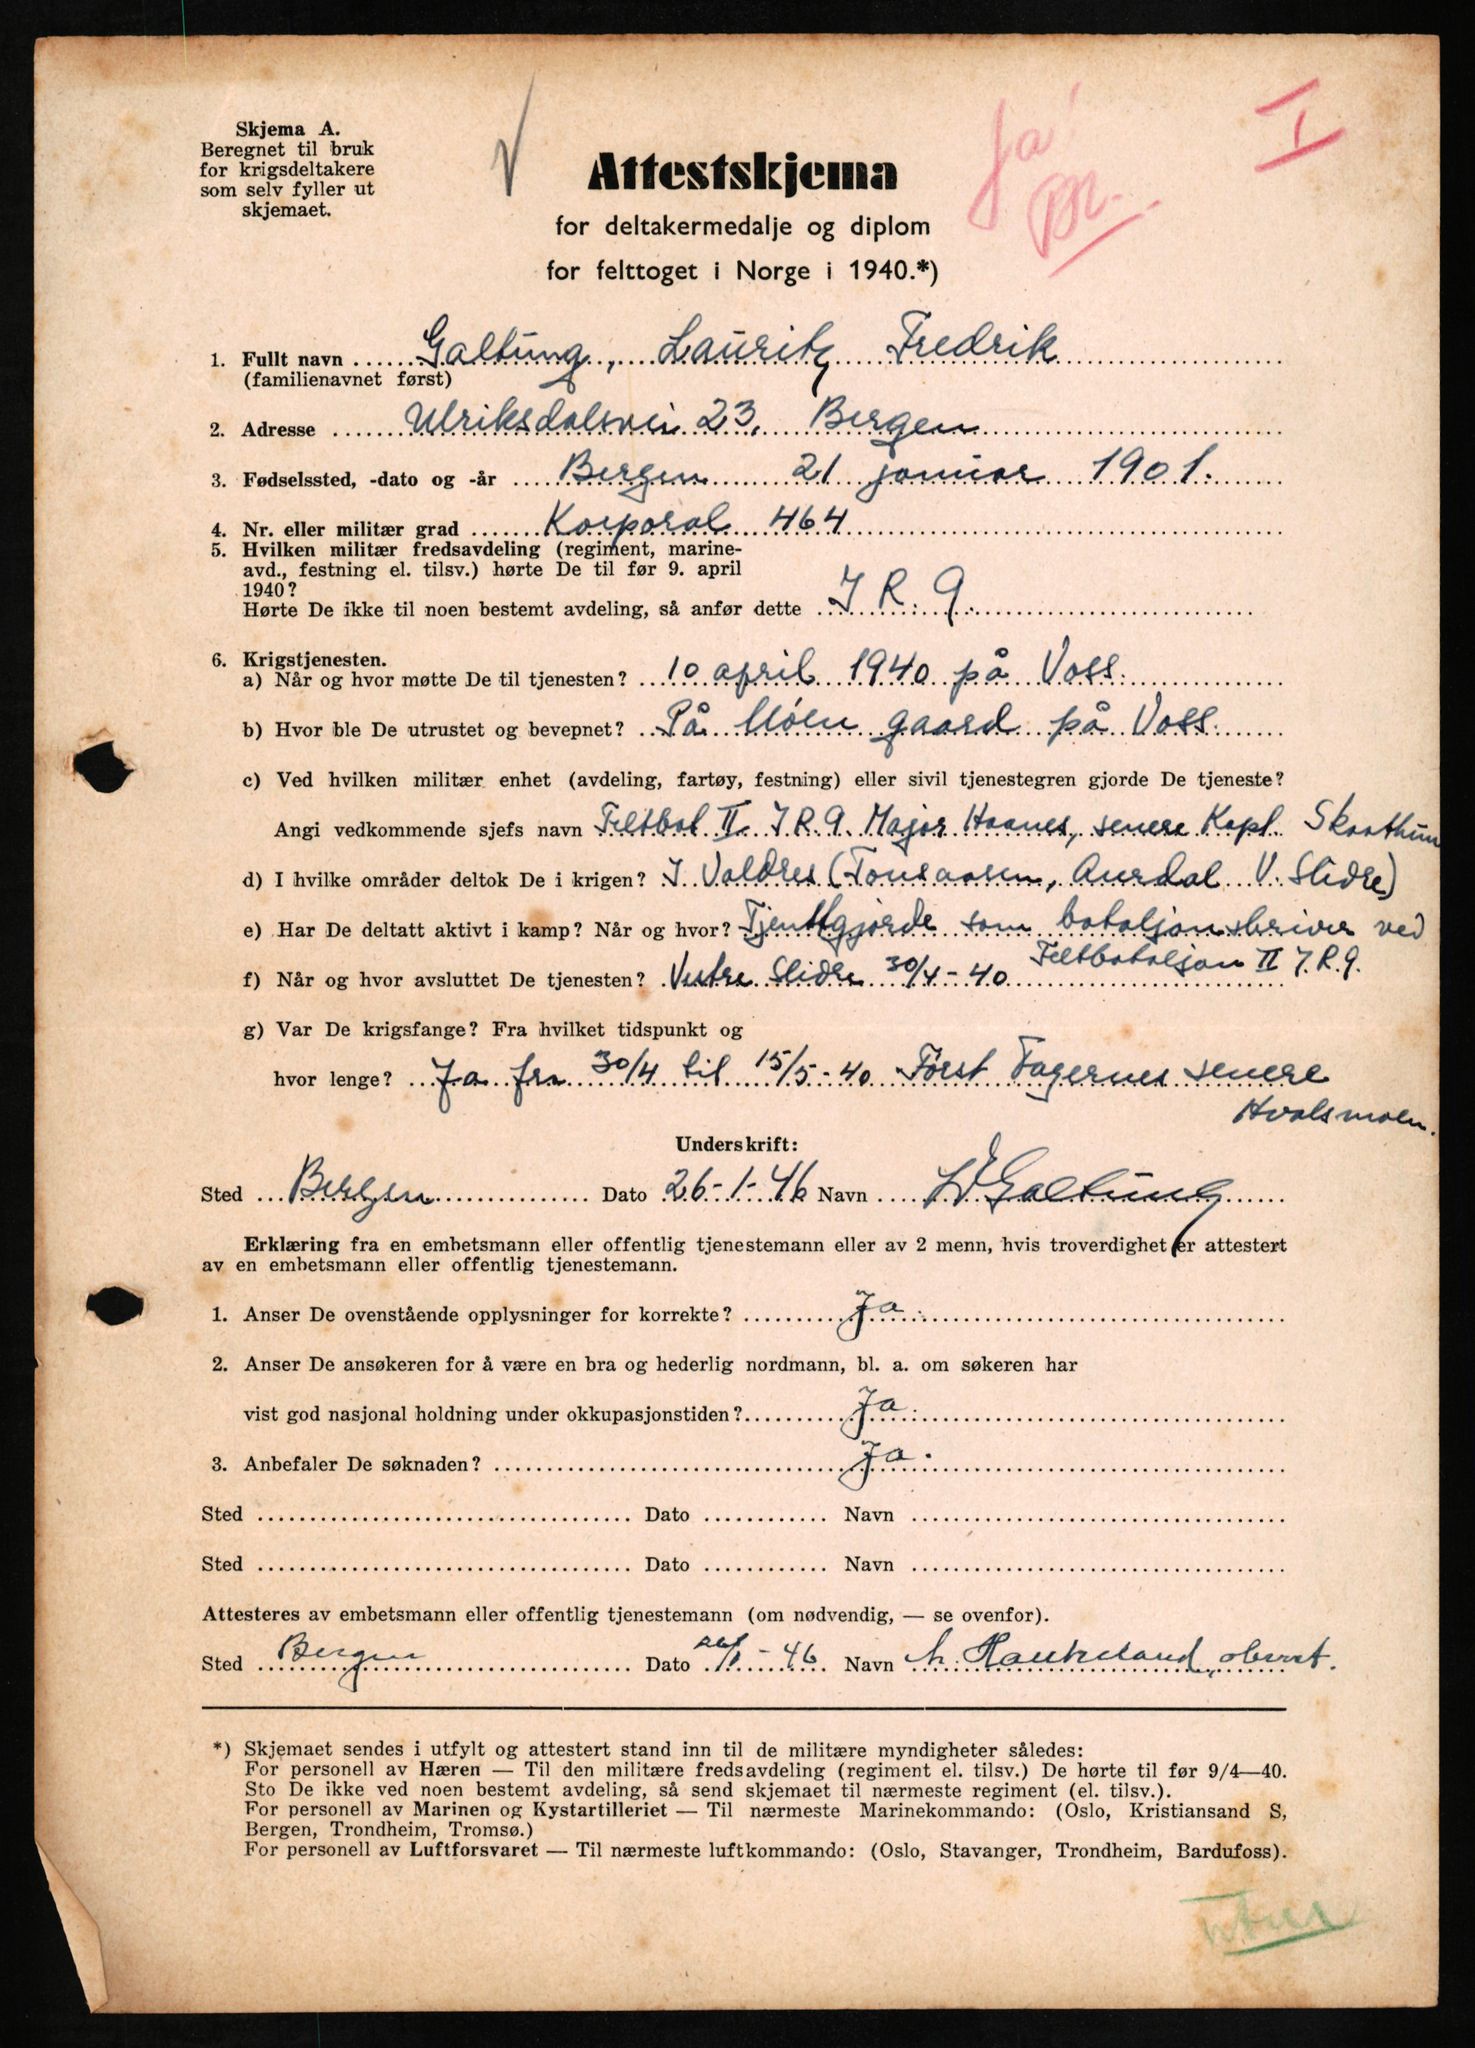 Skjema A.
Beregnet til bruk
for krigsdeltakere
som selv fyller ut
skjemaet.
Ja!
Br.
I
Attestskjema
for deltakermedalje og diplom
for felttoget i Norge i 1940.*)
1. Fullt navn Galtung, Lauritz Fredrik
(familienavnet først)
2. Adresse Ulriksdalsvei 23, Bergen
3. Fødselssted, -dato og -år Bergen 21 januar 1901.
4. Nr. eller militær grad Korporal 464
5. Hvilken militær fredsavdeling (regiment, marine-
avd., festning el. tilsv.) hørte De til før 9. april
1940?
Hørte De ikke til noen bestemt avdeling, så anfør dette I R. 9.
6. Krigstjenesten.
a) Når og hvor møtte De til tjenesten? 10 april 1940 på Voss.
b) Hvor ble De utrustet og bevepnet? På Møen gaard på Voss.
c) Ved hvilken militær enhet (avdeling, fartøy, festning) eller sivil tjenestegren gjorde De tjeneste?
Angi vedkommende sjefs navn Feltbat II I R. 9. Major Haanes, senere Kapt. Skaathun
d) I hvilke områder deltok De i krigen? I Valdres (Tonsaasen, Aurdal V. Slidre)
e) Har De deltatt aktivt i kamp? Når og hvor? Tjenstgjorde som bataljonskriver ved
Feltbataljon II I.R.9.
f) Når og hvor avsluttet De tjenesten? Vestre Slidre 30/4-40
g) Var De krigsfange? Fra hvilket tidspunkt og
hvor lenge? Ja fra 30/4 til 15/5-40 Først Fagernes senere
Hvalsmoen.
Underskrift:
Sted Bergen Dato 26-1-46 Navn LF Galtung
Erklæring fra en embetsmann eller offentlig tjenestemann eller av 2 menn, hvis troverdighet er attestert
av en embetsmann eller offentlig tjenestemann.
1. Anser De ovenstående opplysninger for korrekte? Ja.
2. Anser De ansøkeren for å være en bra og hederlig nordmann, bl. a. om søkeren har
vist god nasjonal holdning under okkupasjonstiden? Ja.
3. Anbefaler De søknaden? Ja.
Sted Dato Navn
Sted Dato Navn
Attesteres av embetsmann eller offentlig tjenestemann (om nødvendig, — se ovenfor).
Sted Bergen Dato 26/1-46 Navn Haukeland, oberst.
*) Skjemaet sendes i utfylt og attestert stand inn til de militære myndigheter således:
For personell av Hæren — Til den militære fredsavdeling (regiment el. tilsv.) De hørte til før 9/4—40.
Sto De ikke ved noen bestemt avdeling, så send skjemaet til nærmeste regiment (el. tilsv.).
For personell av Marinen og Kystartilleriet — Til nærmeste Marinekommando: (Oslo, Kristiansand S,
Bergen, Trondheim, Tromsø.)
For personell av Luftforsvaret — Til nærmeste luftkommando: (Oslo, Stavanger, Trondheim, Bardufoss).